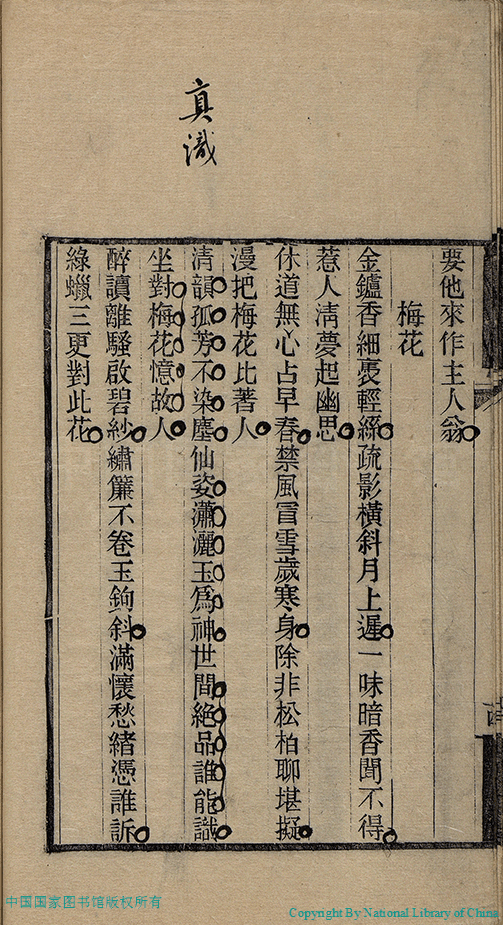 真識
要他來作主人翁
梅花
金鑪香細裊輕絲疏影橫斜月上遲一味暗香聞不得
惹人清夢起幽思
休道無心占早春禁風冒雪歲寒身除非松柏聊堪擬
漫把梅花比著人
清韻孤芳不染塵仙姿瀟灑玉爲神世間絕品誰能識
坐對梅花憶故人
醉讀離騷啟碧紗繡簾不卷玉鉤斜滿懷愁緒憑誰訴
綠蠟三更對此花
中国国家图书馆版权所有
Copyright By National Library of China